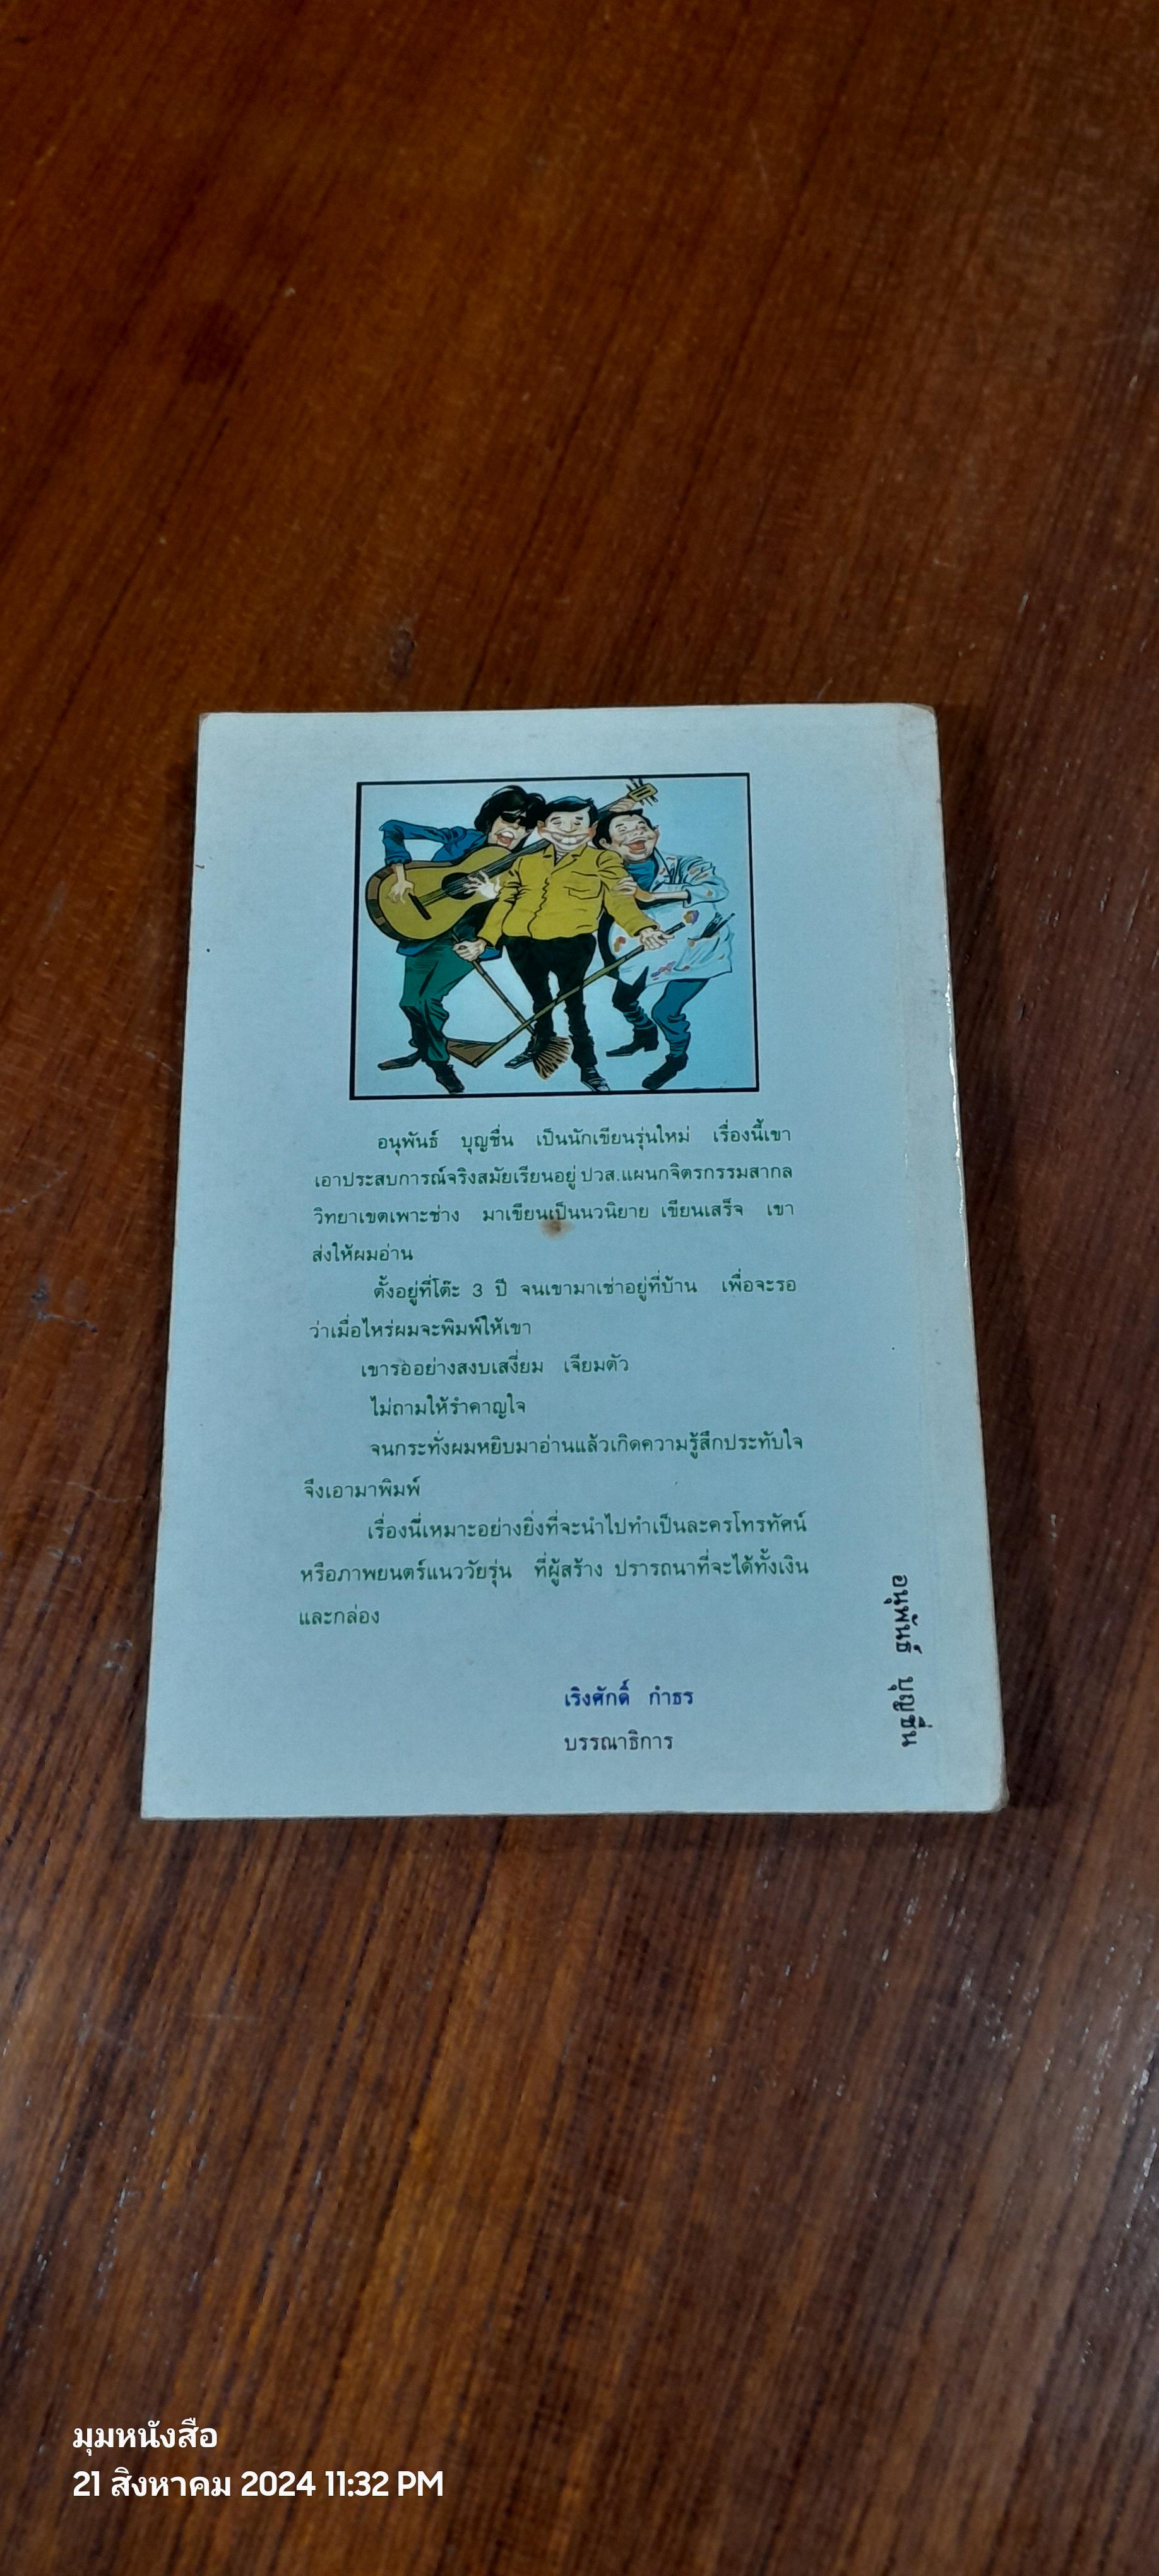 อนุพันธ์ บุญชื่น เป็นนักเขียนรุ่นใหม่ เรื่องนี้เขา
เอาประสบการณ์จริงสมัยเรียนอยู่ ปวส.แผนกจิตรกรรมสากล
วิทยาเขตเพาะช่าง มาเขียนเป็นนวนิยาย เขียนเสร็จ เขา
ส่งให้ผมอ่าน
ตั้งอยู่ที่โต๊ะ 3 ปี จนเขามาเช่าอยู่ที่บ้าน เพื่อจะรอ
ว่าเมื่อไหร่ผมจะพิมพ์ให้เขา
เขารออย่างสงบเสงี่ยม เจียมตัว
ไม่ถามให้รำคาญใจ
จนกระทั่งผมหยิบมาอ่านแล้วเกิดความรู้สึกประทับใจ
จึงเอามาพิมพ์
เรื่องนี้เหมาะอย่างยิ่งที่จะนำไปทำเป็นละครโทรทัศน์
หรือภาพยนตร์แนววัยรุ่น ที่ผู้สร้าง ปรารถนาที่จะได้ทั้งเงิน
และกล่อง
เริงศักดิ์ กำธร
บรรณาธิการ
อนุพันธ์ บุญชื่น
มุมหนังสือ
21 สิงหาคม 2024 11:32 PM